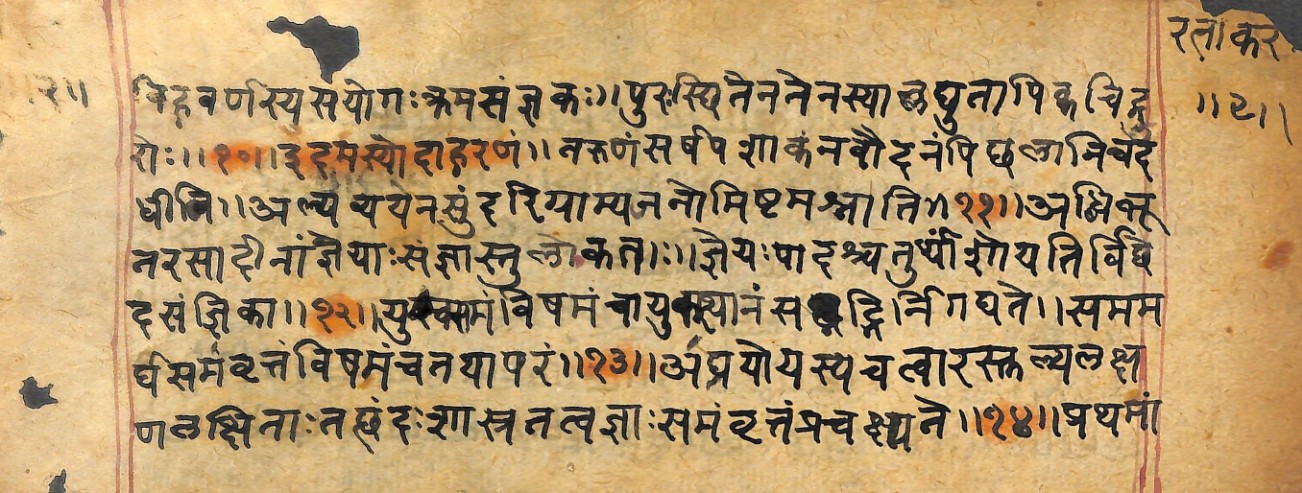 रत्नाकर
॥२॥
विह वर्णस्य सयोगः क्रमसंज्ञकः॥ पुरस्थितेन तेन स्याल्लघुतापि क्वचिद्गु
रोः॥१०॥ इदमस्योदाहरणं॥ तरुणं सर्षपशाकं नवौदनं पिछलानि च द
धीनि॥ अल्पव्ययेन सुंदरि ग्राम्यजनो मिष्टमश्नाति॥११॥ अब्धिभू
तरसादीनां ज्ञेयाः संज्ञास्तु लोकतः॥ ज्ञेयः पादश्चतुर्थांशो यतिर्विछे
दसंज्ञिका॥१२॥ युक्समं विषमं चायुक्स्थानं सद्भिर्निगद्यते॥ समम
र्धसमं वृत्तं विषमं च तथापरं॥१३॥ अंघ्रयो यस्य चत्वारस्तुल्यलक्ष
णलक्षिताः तछंदःशास्त्रतत्वज्ञाः समं वृत्तं प्रचक्ष्यते॥१४॥ प्रथमां